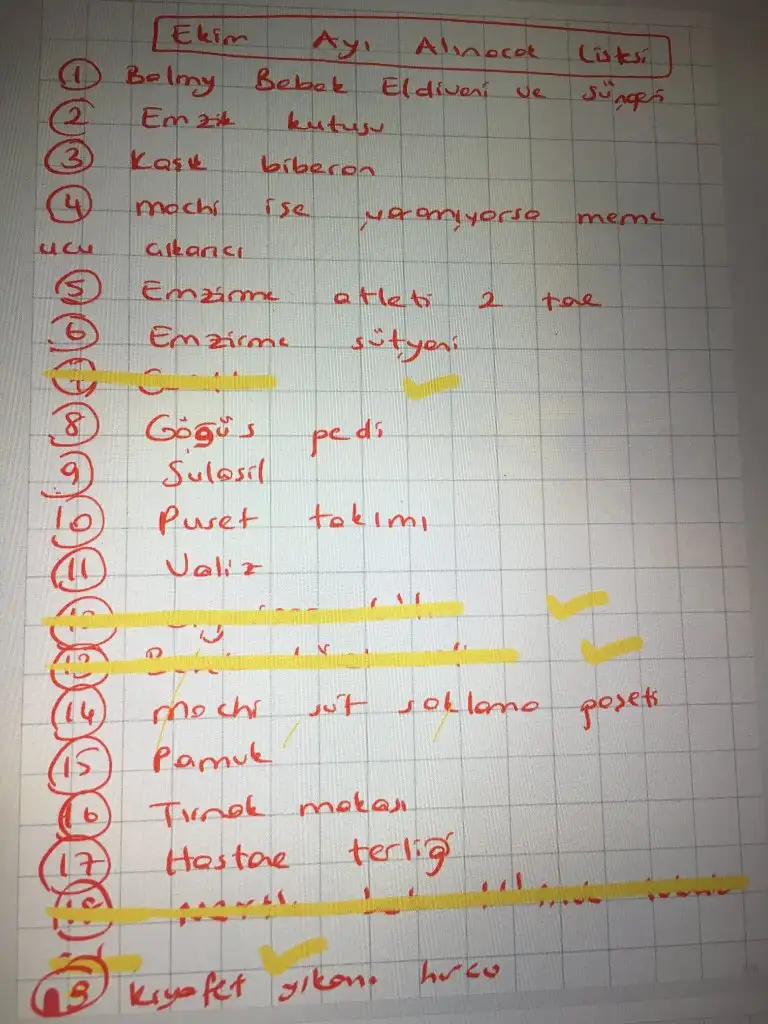 Ekim Ayı Alınacak Listesi
1 Balmy Bebek Eldiveni ve süngeri
2 Emzik kutusu
3 Kaşık biberon
4 mochi işe yaramıyorsa meme
ucu çıkarıcı
5 Emzirme atleti 2 tae
6 Emzirme sütyeni
7
8 Göğüs pedi
9 Sulosil
10 Puset takımı
11 Valiz
12
13
14 mochi süt saklama poşeti
15 Pamuk
16 Tırnak makası
17 Hastae terliği
18
Kıyafet yıkama hurcu